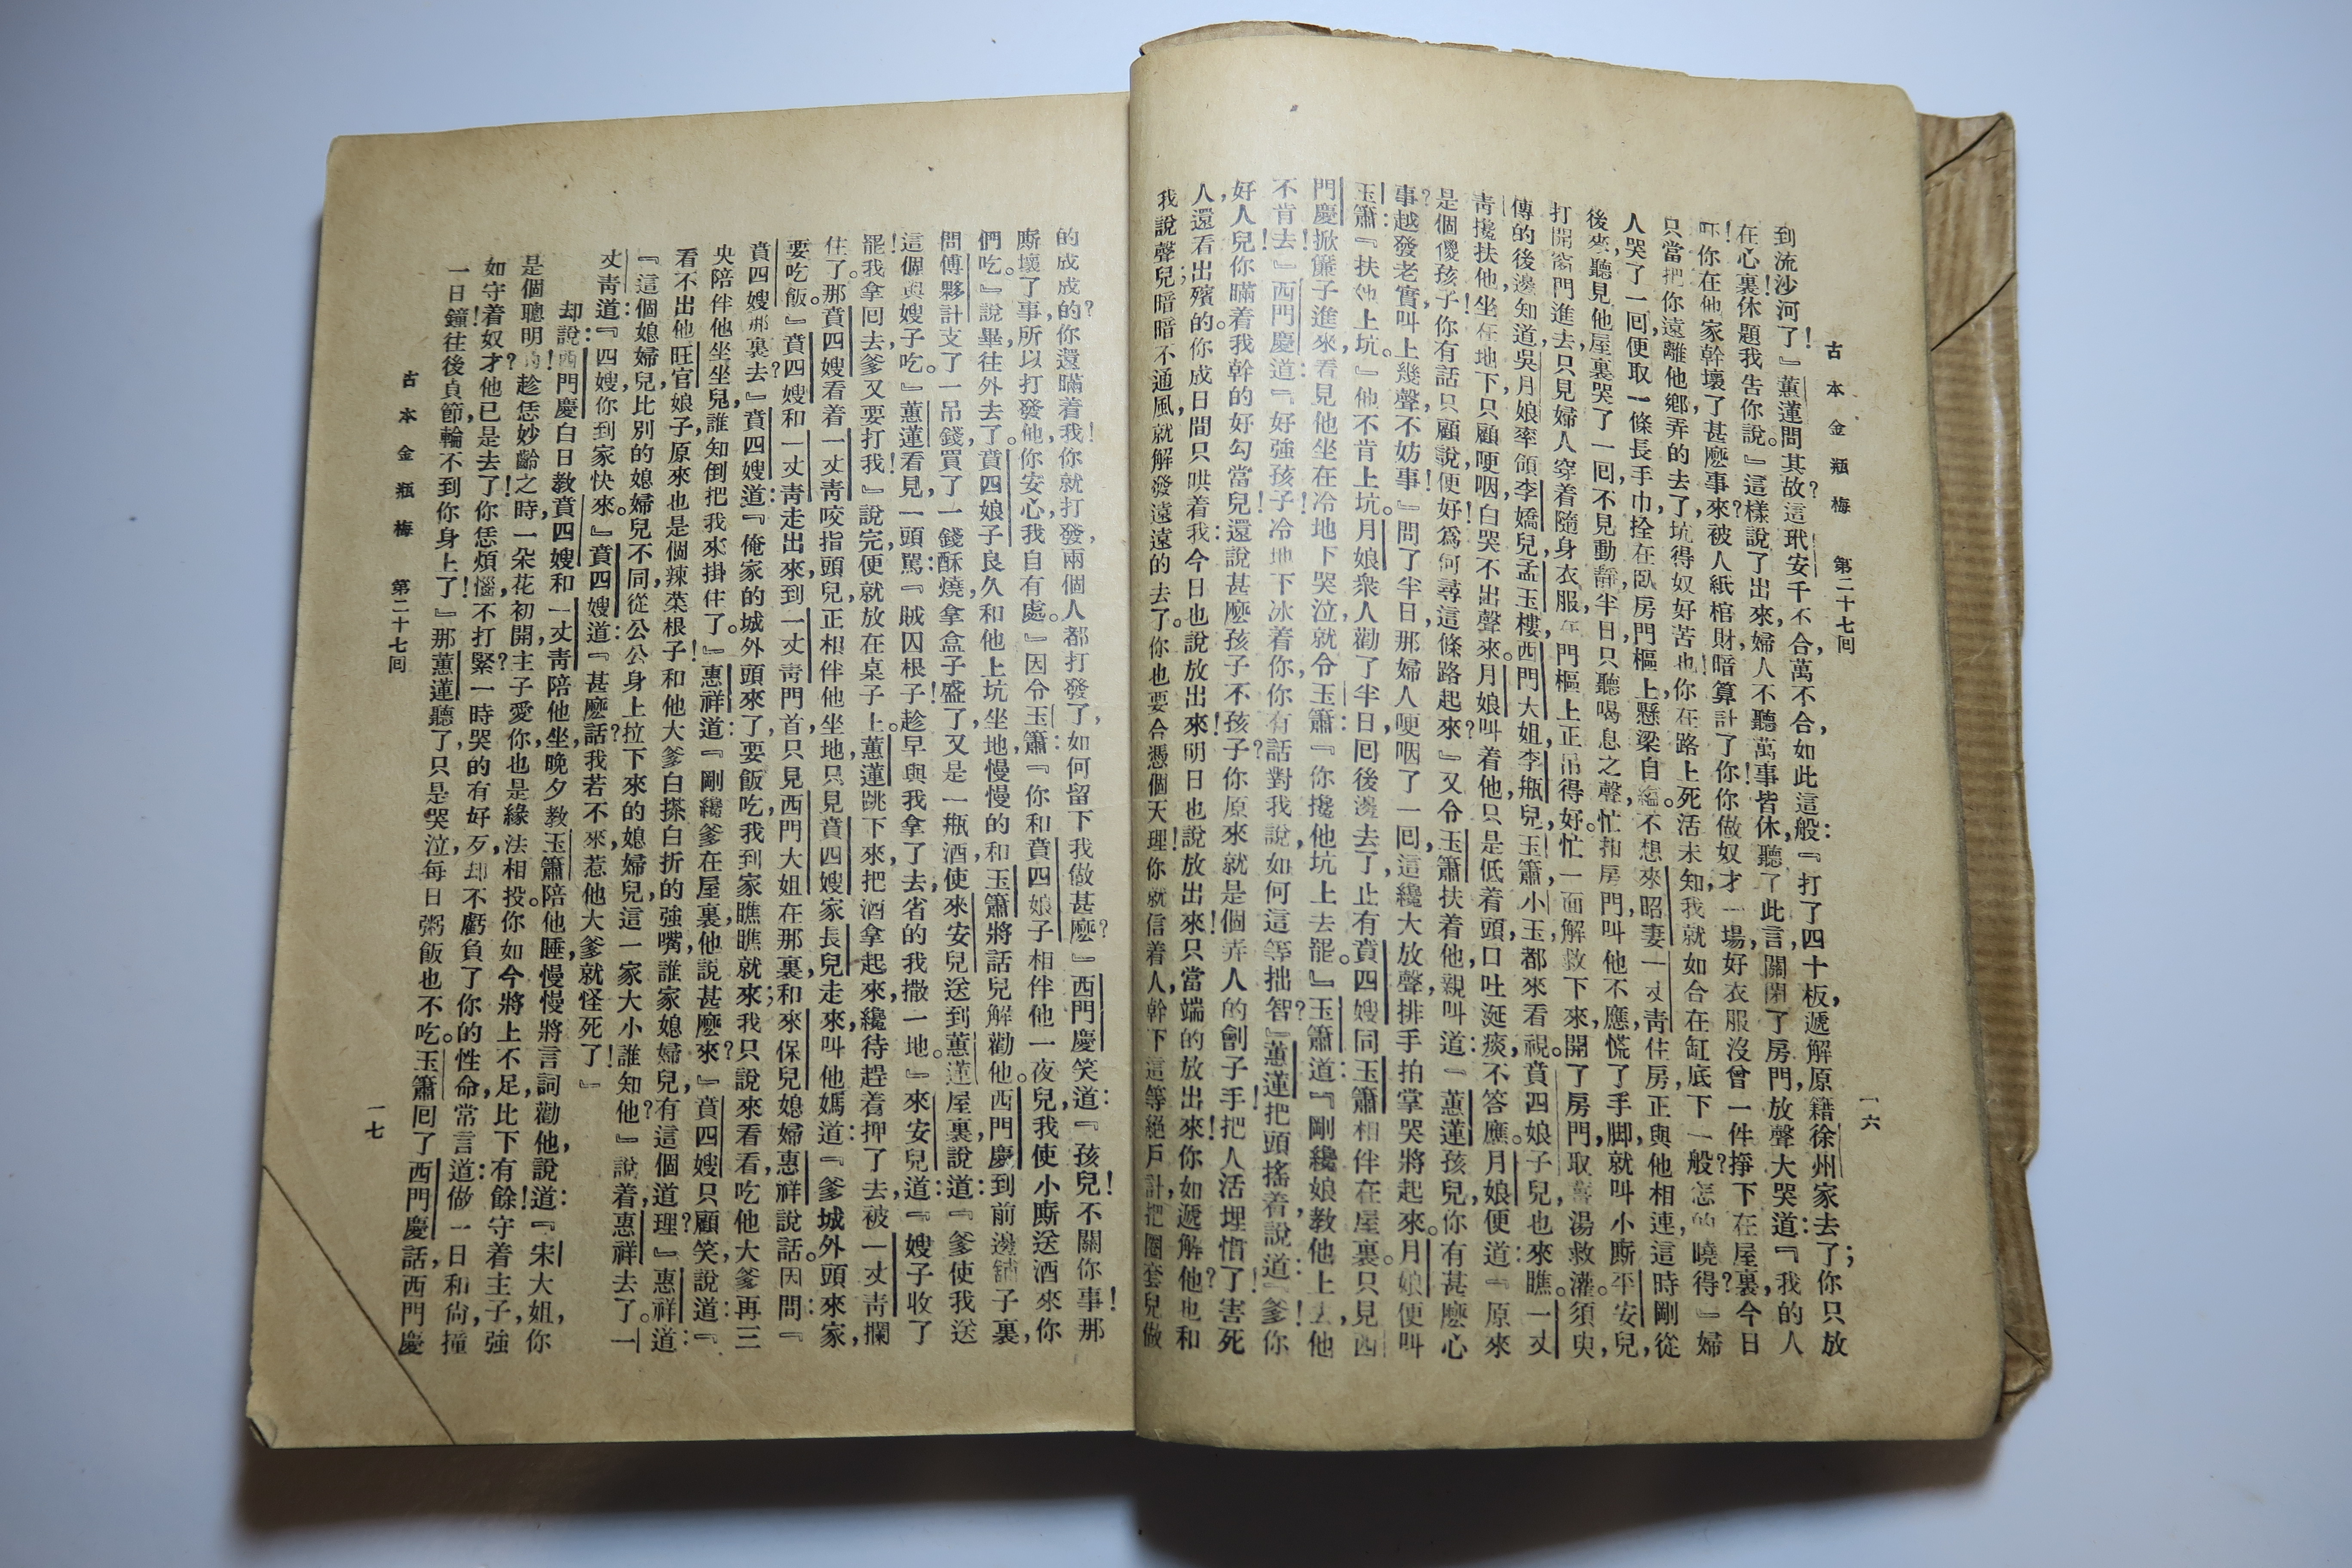 古本金瓶梅 第二十七回 一六
到流沙河了!』蕙蓮問其故?這玳安千不合,萬不合,如此這般:『打了四十板,遞解原籍徐州家去了;你只放
在心裏!休題我告你說。』這樣說了出來,婦人不聽萬事皆休,聽了此言,關閉了房門,放聲大哭道:『我的人
吓!你在他家幹壞了甚麽事來?被人紙棺財暗算計了你!你做奴才一場,好衣服沒曾一件掙下在屋裏,今日
只當把你遠離他鄉弄的去了,坑得奴好苦也!你在路上死活未知,我就如合在缸底下一般?怎的曉得?』婦
人哭了一囘,便取一條長手巾,拴在臥房門樞上,懸梁自縊。不想來昭妻一丈靑住房,正與他相連,這時剛從
後來,聽見他屋裏哭了一囘,不見動靜,半日只聽喝息之聲,忙扣房門叫他不應,慌了手脚,就叫小厮平安兒,
打開窗門進去,只見婦人穿着隨身衣服,在門樞上正吊得好。忙一面解救下來,開了房門,取薑湯救灌。須臾,
傳的後邊知道,吳月娘率領李嬌兒,孟玉樓,西門大姐,李瓶兒,玉簫,小玉都來看視。賁四娘子兒也來瞧。一丈
靑攙扶他坐在地下,只顧哽咽,白哭不出聲來。月娘叫着他,只是低着頭,口吐涎痰,不答應。月娘便道:『原來
是個傻孩子!你有話只顧說便好,爲何尋這條路起來?』又令玉簫扶着他,親叫道:『蕙蓮孩兒,你有甚麽心
事?越發老實,叫上幾聲不妨事!』問了半日,那婦人哽咽了一囘,這纔大放聲,排手拍掌哭將起來。月娘便叫
玉簫:『扶他上坑。』他不肯上坑。月娘衆人勸了半日,囘後邊去了,止有賁四嫂同玉簫相伴在屋裏。只見西
門慶掀簾子進來,看見他坐在冷地下哭泣,就令玉簫:『你攙他坑上去罷。』玉簫道:『剛纔娘教他上去,他
不肯去!』西門慶道:『好強孩子!冷地下冰着你,你有話對我說,如何這等拙智?』蕙蓮把頭搖着說道:『爹!你
好人兒!你瞞着我幹的好勾當兒!還說甚麽孩子不孩子?你原來就是個弄人的劊子手!把人活埋慣了!害死
人,還看出殯的。你成日間只哄着我:今日也說放出來!明日也說放出來!只當端的放出來!你如遞解他?也和
我說聲兒;暗暗不通風,就解發遠遠的去了。你也要合憑個天理!你就信着人,幹下這等絕戶計,把圈套兒做
的成成的?你還瞞着我!你就打發,兩個人都打發了,如何留下我做甚麽?』西門慶笑道:『孩兒!不關你事!那
厮壞了事,所以打發他,你安心,我自有處。』因令玉簫:『你和賁四娘子相伴他一夜兒,我使小厮送酒來你
們吃。』說畢,往外去了。賁四娘子良久和他上坑坐地,慢慢的和玉簫將話兒解勸他。西門慶到前邊舖子裏,
問傅夥計支了一吊錢,買了一錢酥燒,拿盒子盛了,又是一瓶酒,使來安兒送到蕙蓮屋裏,說道:『爹使我送
這個與嫂子吃。』蕙蓮看見,一頭罵:『賊囚根子!趁早與我拿了去,省的我撒一地。』來安兒道:『嫂子收了
罷!我拿囘去,爹又要打我!』說完,便就放在桌子上。蕙蓮跳下來,把酒拿起來,纔待趕着押了去,被一丈靑攔
住了。那賁四嫂看着一丈靑咬指頭兒,正相伴他坐地,只見賁四嫂家長兒走來,叫他媽道:『爹城外頭來家,
要吃飯。』賁四嫂和一丈靑走出來,到一丈靑門首,只見西門大姐在那裏,和來保兒媳婦惠祥說話。因問:『
賁四嫂那裏去?』賁四嫂道:『俺家的城外頭來了,要飯吃,我到家瞧瞧就來;我只說來看看,吃他大爹再三
央陪伴他坐坐兒,誰知倒把我來掛住了。』惠祥道:『剛纔爹在屋裏,他說甚麽來?』賁四嫂只顧笑,說道:『
看不出他旺官娘子,原來也是個辣菜根子!和他大爹白搽白折的強嘴,誰家媳婦兒,有這個道理?』惠祥道:
『這個媳婦兒比別的媳婦兒不同,從公公身上拉下來的媳婦兒,這一家大小誰知他?』說着,惠祥去了。一
丈靑道:『四嫂,你到家快來。』賁四嫂道:『甚麽話?我若不來,惹他大爹就怪死了!』
却說西門慶白日教賁四嫂和一丈靑陪他坐,晚夕教玉簫陪他睡,慢慢將言詞勸他,說道:『宋大姐,你
是個聰明的!趁恁妙齡之時,一朵花初開,主子愛你,也是緣法相投。你如今將上不足,比下有餘,守着主子,強
如守着奴才?他已是去了!你恁煩惱,不打緊?一時哭的有好歹,却不虧負了你的性命,常言道:做一日和尙,撞
一日鐘,往後貞節,輪不到你身上了!』那蕙蓮聽了,只是哭泣,每日粥飯也不吃。玉簫囘了西門慶話,西門慶
古本金瓶梅 第二十七囘 一七